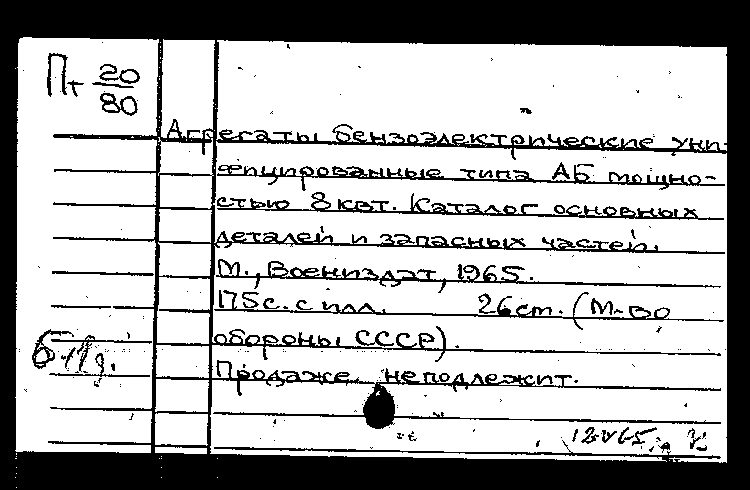 Пт 20
80
Агрегаты бензоэлектрические уни-
фицированные типа АБ мощно-
стью 8 квт. Каталог основных
деталей и запасных частей.
М., Воениздат, 1965.
175 с. с илл. 26 см. (М-во
обороны СССР).
Продаже неподлежит.